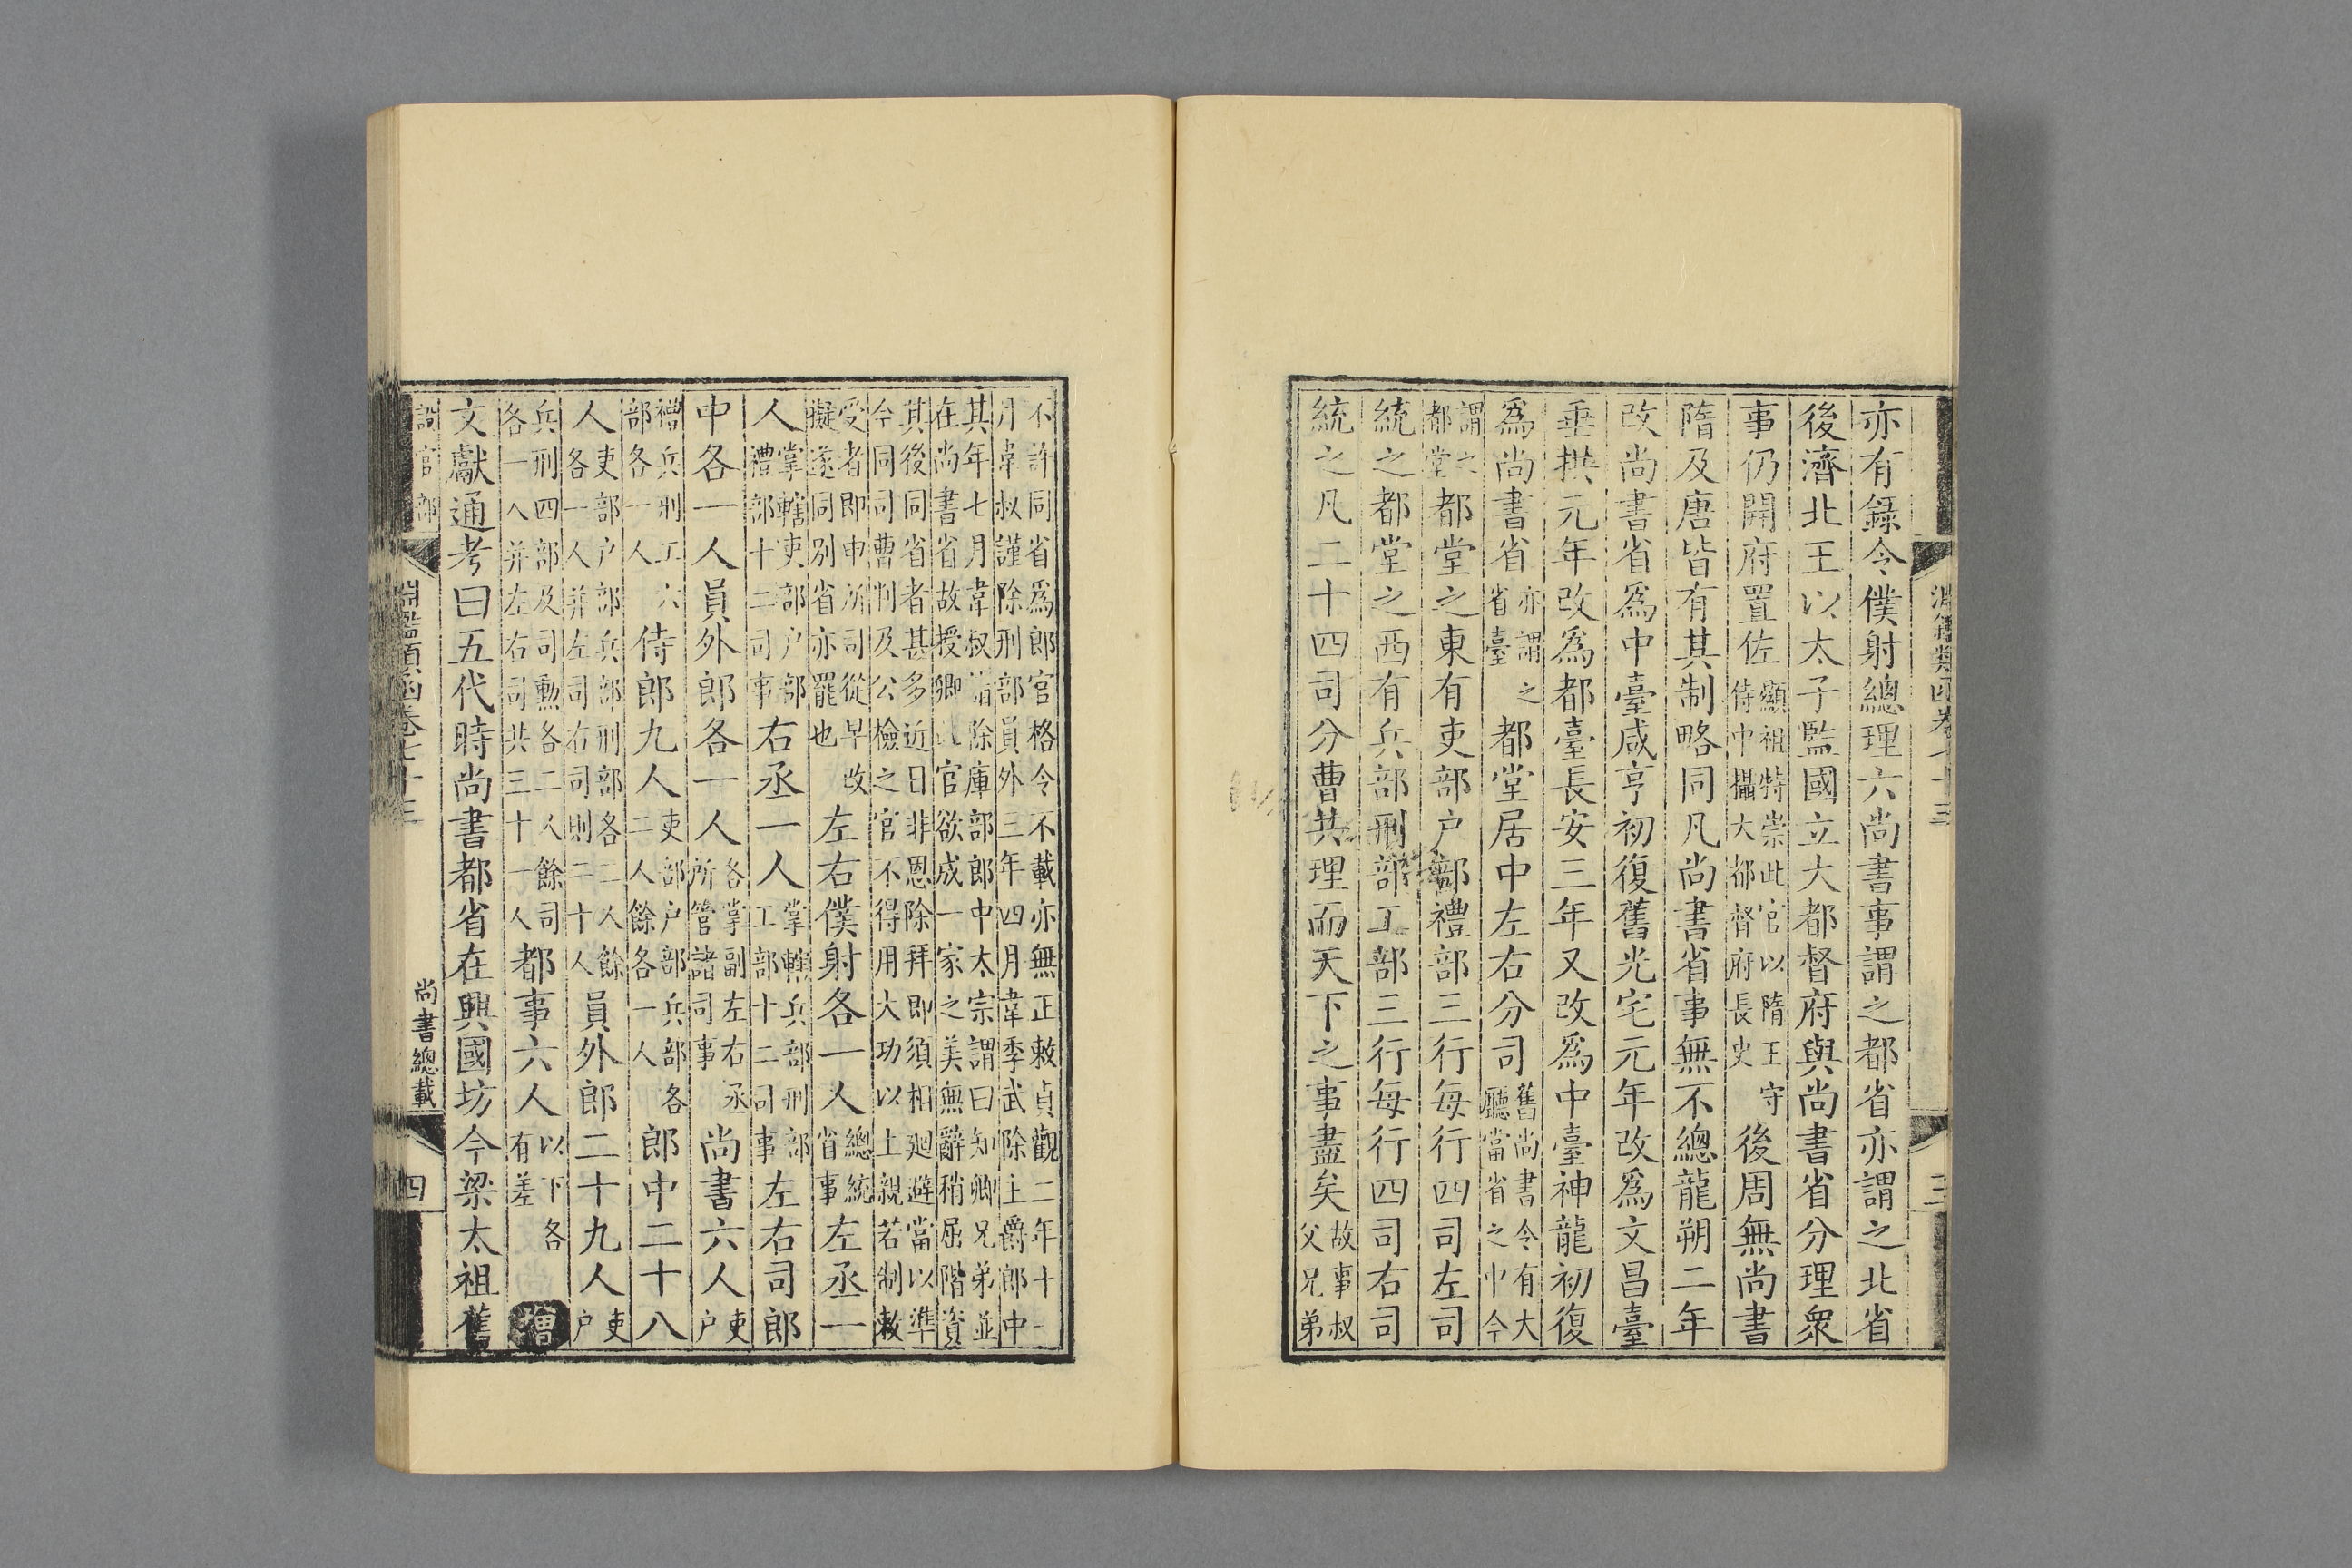 亦有錄令僕射總理六尚書事謂之都省亦謂之北省
後濟北王以太子監國立大都督府與尚書省分理衆
事仍開府置佐顯祖特崇此官以隋王守侍中攝大都督府長史後周無尚書
隋及唐皆有其制略同凡尚書省事無不總龍朔二年
改尚書省爲中臺咸亨初復舊光宅元年改爲文昌臺
垂拱元年改爲都臺長安三年又改爲中臺神龍初復
爲尚書省亦謂之省臺都堂居中左右分司舊尚書令有大廳當省之中今
謂之都堂都堂之東有吏部户部禮部三行每行四司左司
統之都堂之西有兵部刑部工部三行每行四司右司
統之凡二十四司分曹共理而天下之事盡矣故事叔父兄弟
淵鑑類函卷七十三
三
不許同省爲郎官格令不載亦無正敕貞觀二年十一
月韋叔謹除刑部員外三年四月韋季武除主爵郎中
其年七月韋叔諧除庫部郎中太宗謂曰知卿兄弟並
在尚書省故授卿此官欲成一家之美無辭稍屈階資
其後同省者甚多近日非恩除拜即須相廻避當以準
今同司曹判及公檢之官不得用大功以上親若制敕
受者即申所司從早改擬遂同别省亦罷也左右僕射各一人總統省事左丞一
人掌轄吏部户部禮部十二司事右丞一人掌轄兵部刑部工部十二司事左右司郎
中各一人員外郎各一人各掌副左右丞所管諸司事尚書六人吏户
禮兵刑工六部各一人侍郎九人吏部户部兵部各二人餘各一人郎中二十八
人吏部户部兵部刑部各二人餘各一人并左司右司則二十人員外郎二十九人吏户
兵刑四部及司勲各二人餘司各一人并左右司共三十一人都事六人以下各有差增
文獻通考曰五代時尚書都省在興國坊今梁太祖舊
設官部
淵鑑類函卷七十三
尚書總載
四